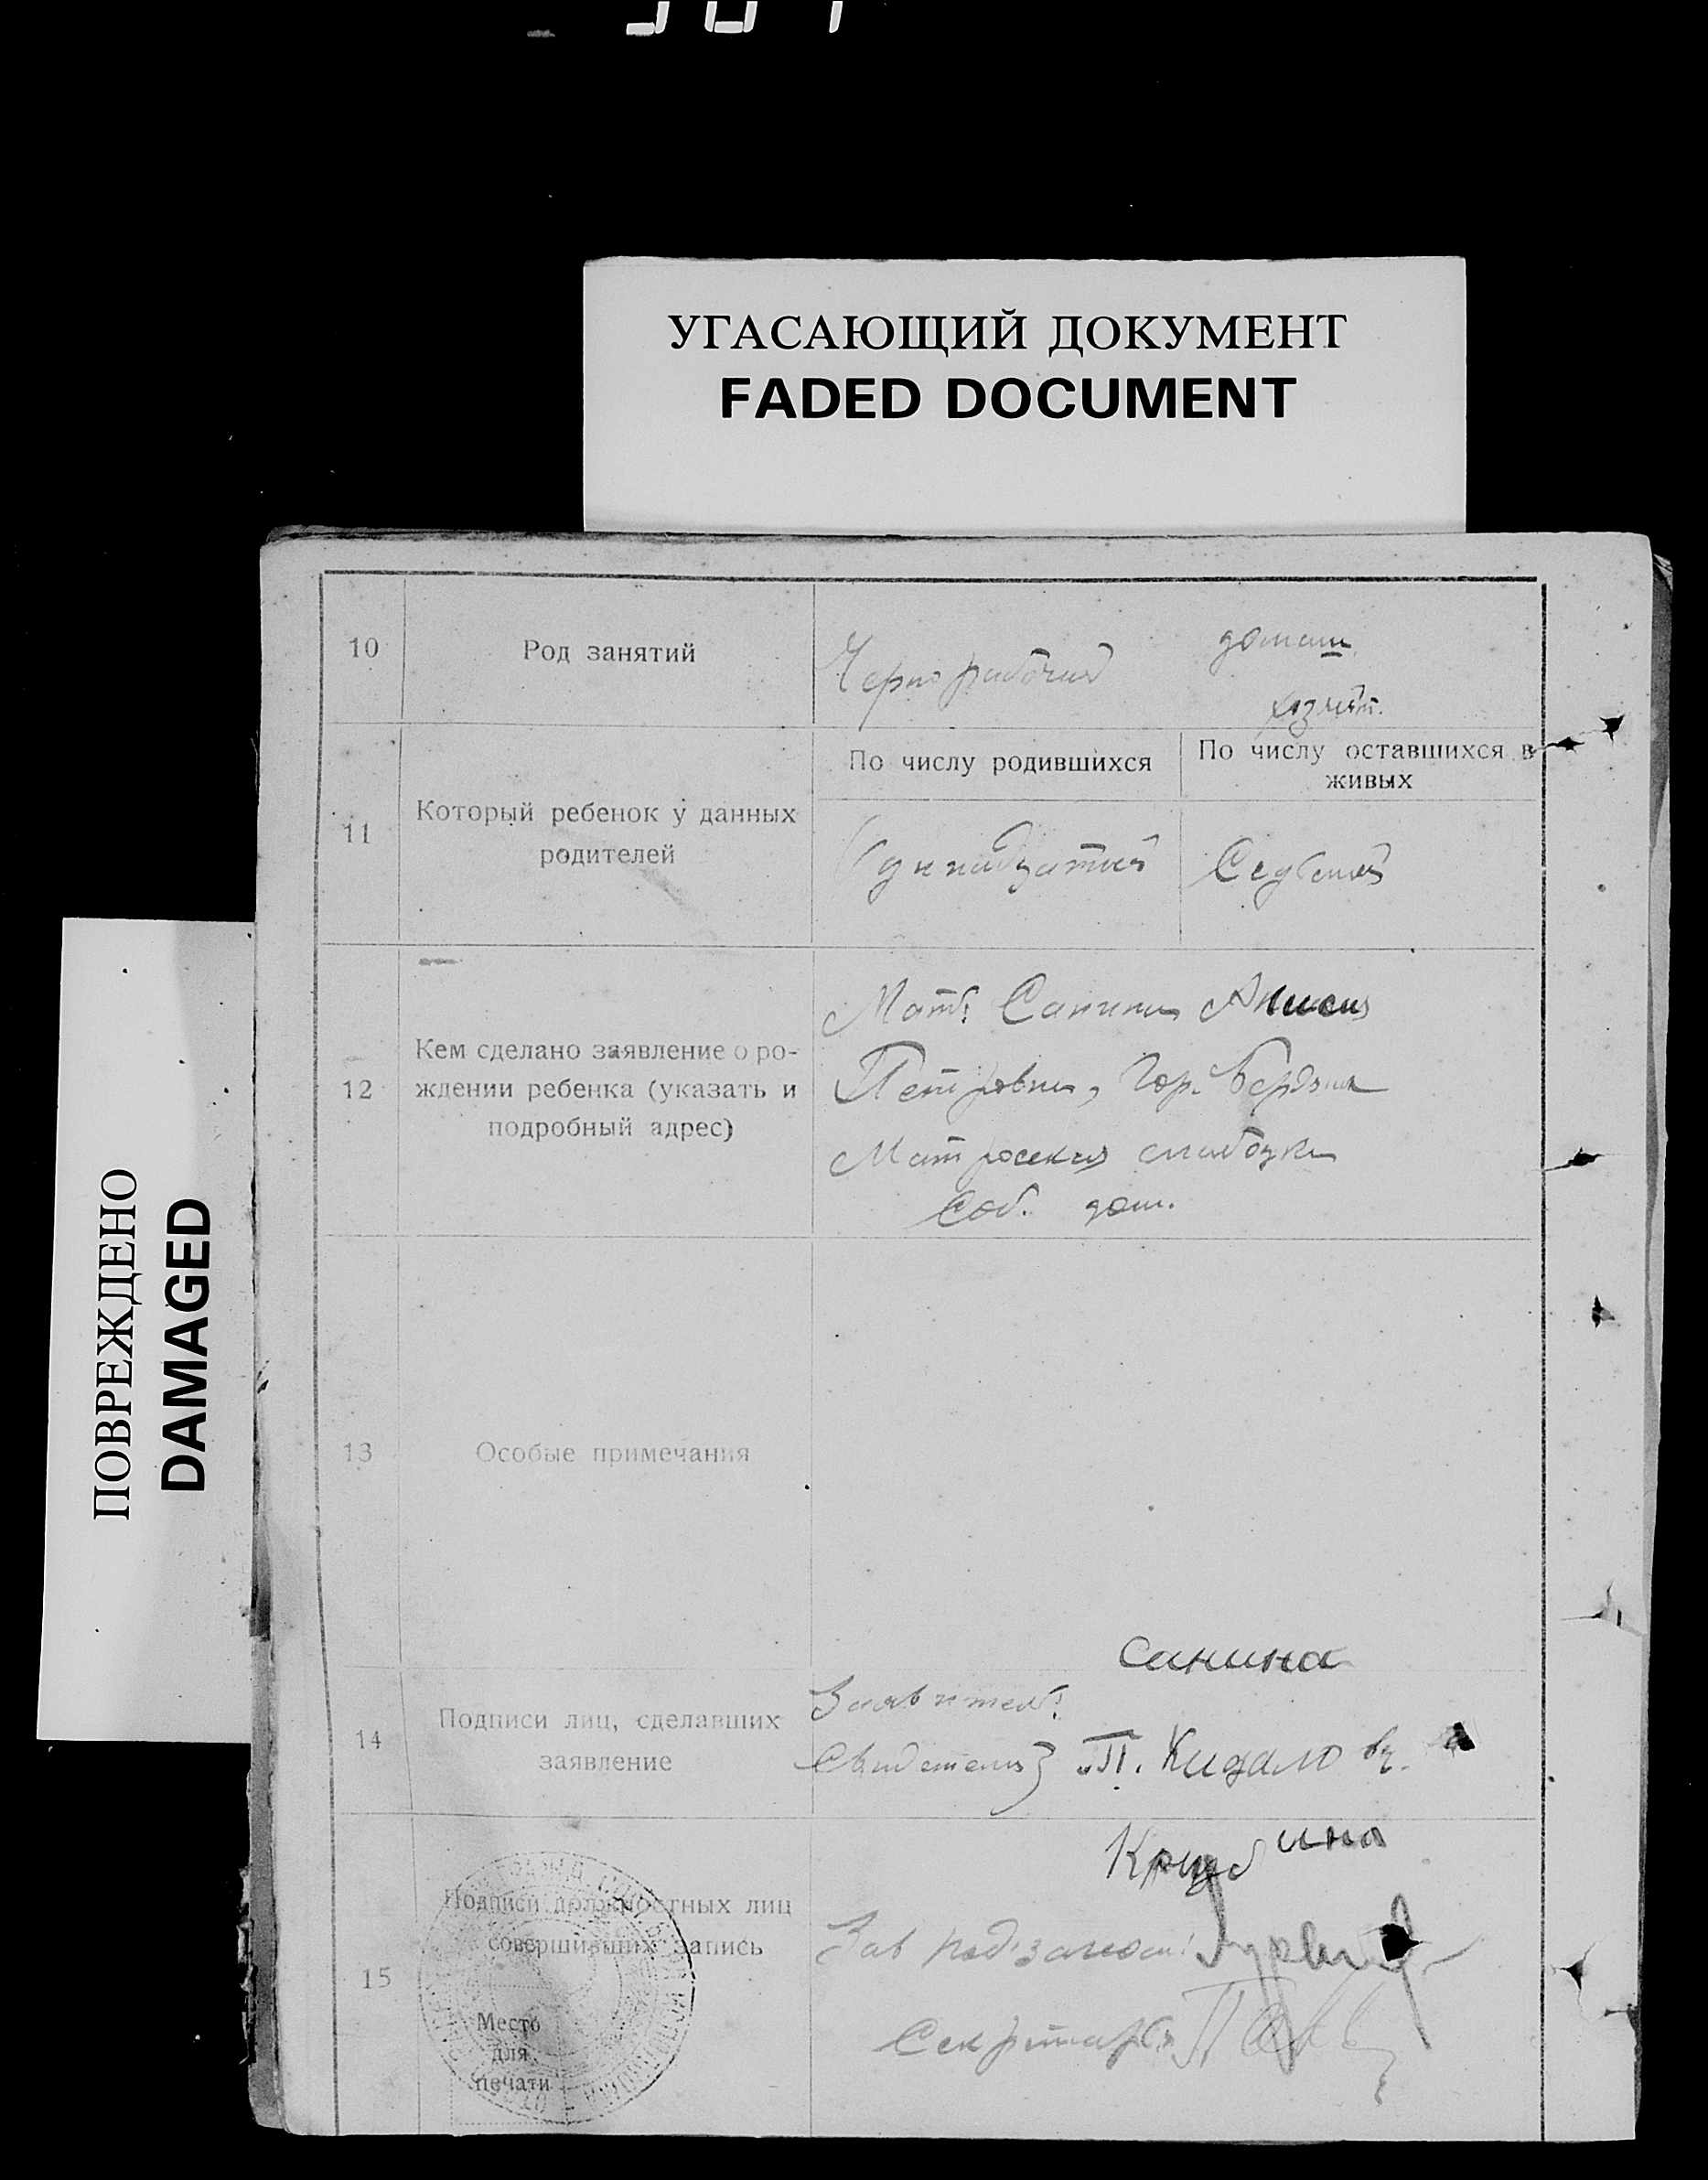 УГАСАЮЩИЙ ДОКУМЕНТ
FADED DOCUMENT
ПОВРЕЖДЕНО
DAMAGED
10 Род занятий
Чернорабочий
домаш.
хозяйст.
11 Который ребенок у данных
родителей
По числу родившихся
По числу оставшихся в
живых
Одиннадцатый
Седьмой
12 Кем сделано заявление о ро-
ждении ребенка (указать и
подробный адрес)
Мать: Санина Анисия
Петровна, Гор. Бердянск
Матросская слободка
Соб. дом.
13 Особые примечания
14 Подписи лиц, сделавших
заявление
Санина
Заявитель:
Свидетели} П.
15 Подписи должностных лиц
совершивших запись
Место
для
печати
Зав
Секретарь